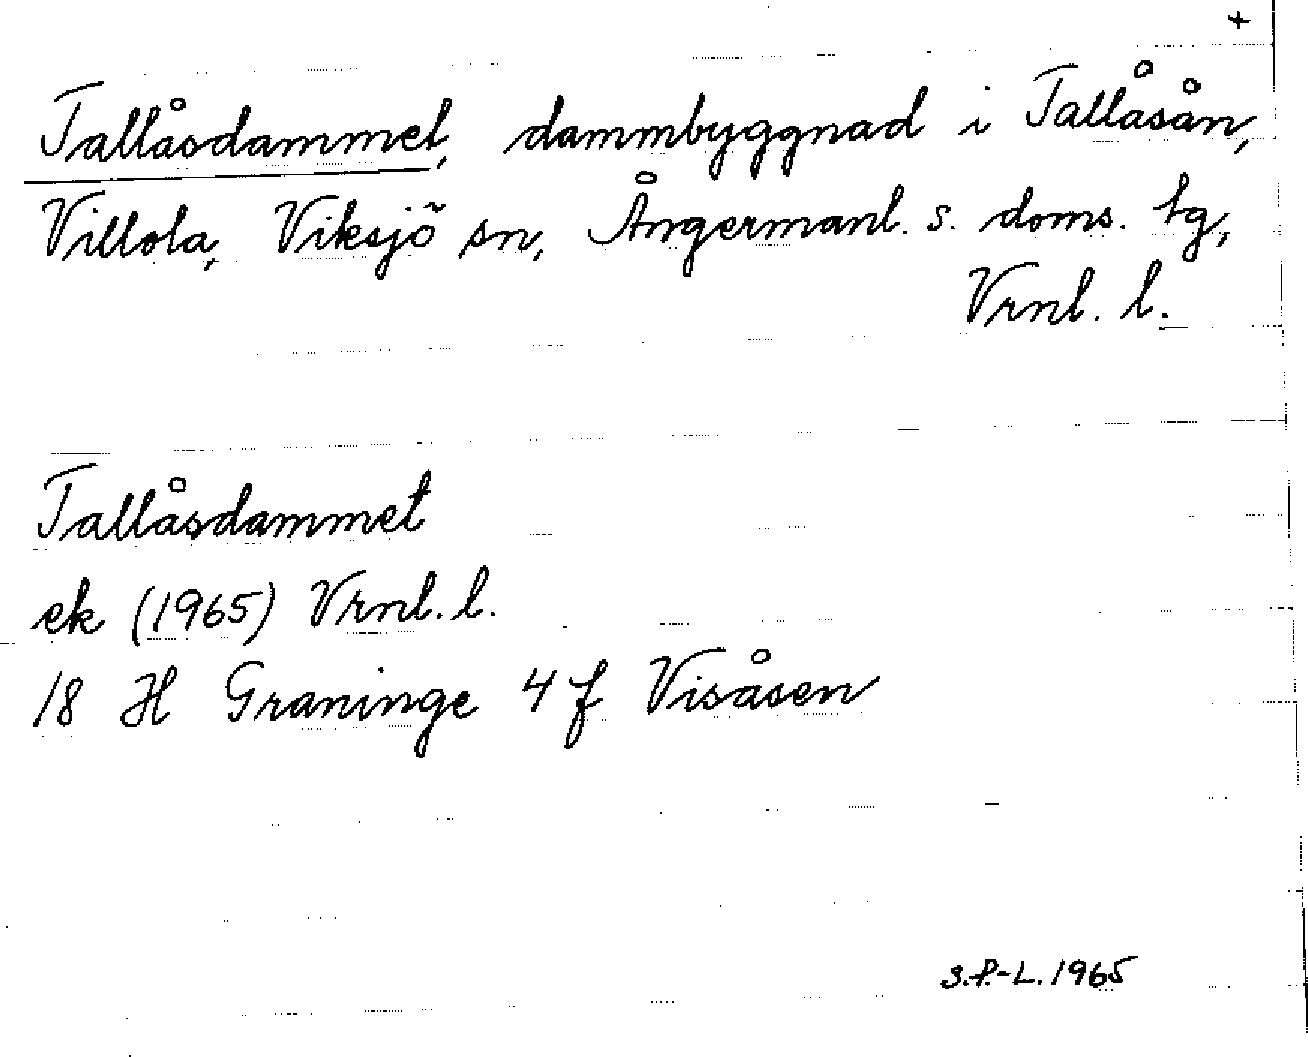 +
Tallåsdammet, dammbyggnad i Tallåsån,
Villola, Viksjö sn, Ångermanl. s. doms. tg,
Vrnl. l.
Tallåsdammet
ek (1965) Vrnl. l.
18 H Graninge 4 f Visåsen
S.P.-L. 1965